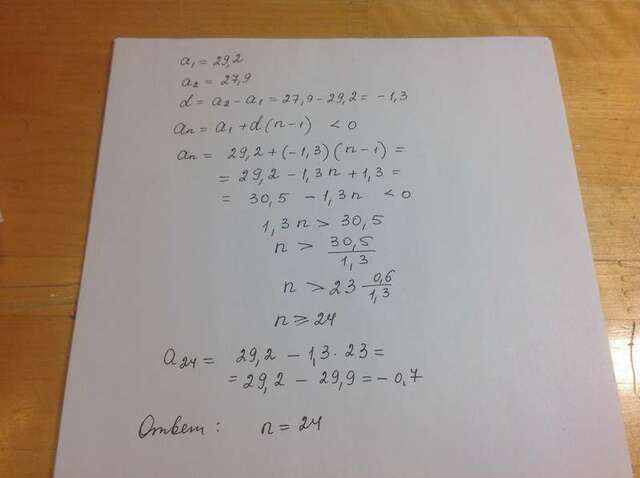 a₁ = 29,2
a₂ = 27,9
d = a₂ - a₁ = 27,9 - 29,2 = -1,3
aₙ = a₁ + d(n-1) < 0
aₙ = 29,2 + (-1,3)(n-1) =
= 29,2 - 1,3n + 1,3 =
= 30,5 - 1,3n < 0
1,3n > 30,5
n > 30,5/1,3
n > 23 0,6/1,3
n ⩾ 24
a₂₄ = 29,2 - 1,3 · 23 =
= 29,2 - 29,9 = -0,7
Ответ: n = 24